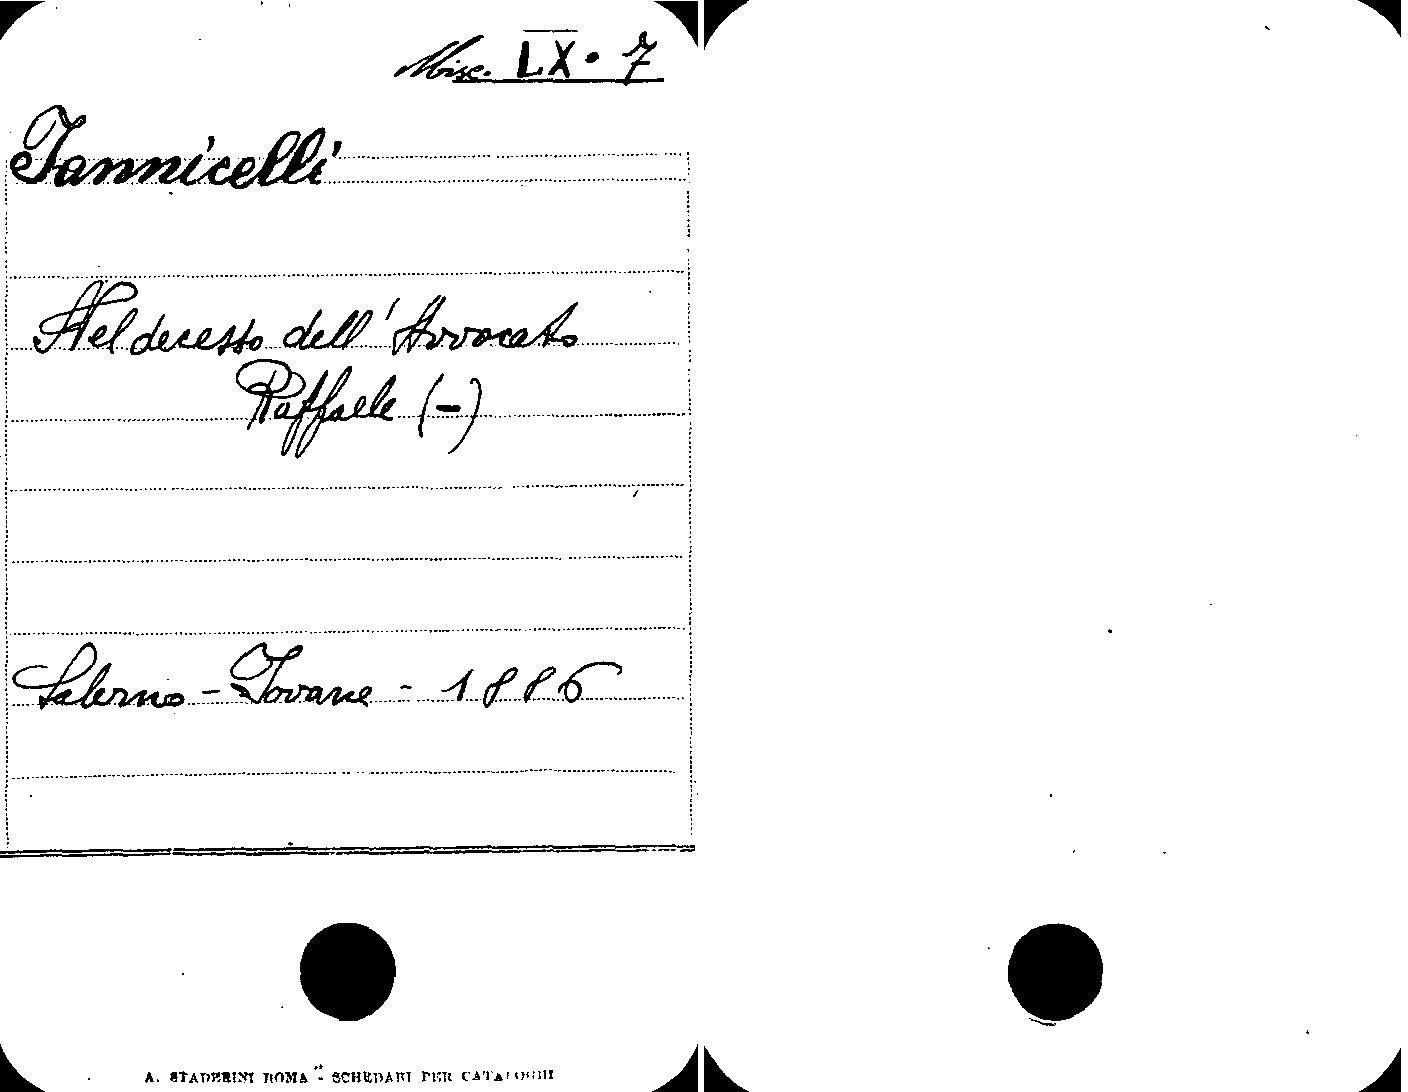 Misc. LX. 7
Iannicelli
Nel decesso dell'Avvocato
Raffaele (-)
Salerno - Jovane - 1886
A. STADERINI ROMA - SCHEDARI PER CATALOGHI